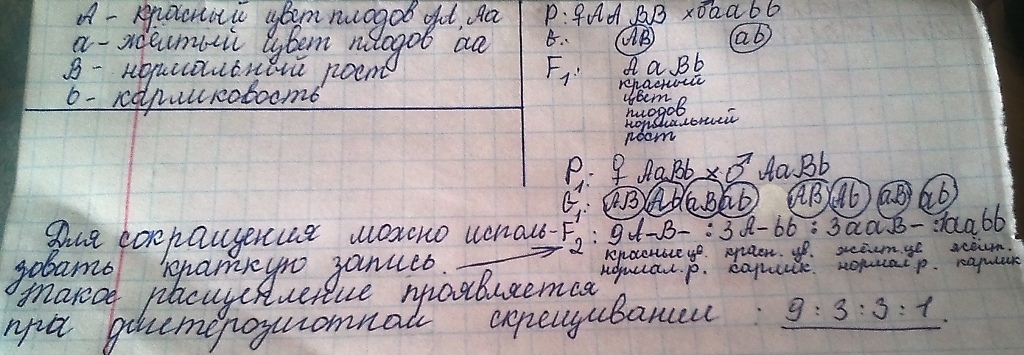 А - красный цвет плодов АА, Аа
а - жёлтый цвет плодов аа
В - нормальный рост
b - карликовость
P: ♀ A A BB × ♂ aabb
G: AB ab
F1: A a B b
красный
цвет
плодов
нормальный
рост
P1: ♀ AaBb × ♂ AaBb
G1: AB Ab aB ab AB Ab aB ab
F2: 9A-B- : 3A-bb : 3aaB- : 1aabb
красные цв. красн. цв. жёлт. цв жёлт.
нормал. р. карлик. нормал р. карлик
Для сокращения можно исполь-
зовать краткую запись. →
Такое расщепление проявляется
при дигетерозиготном скрещивании : 9 : 3 : 3 : 1.